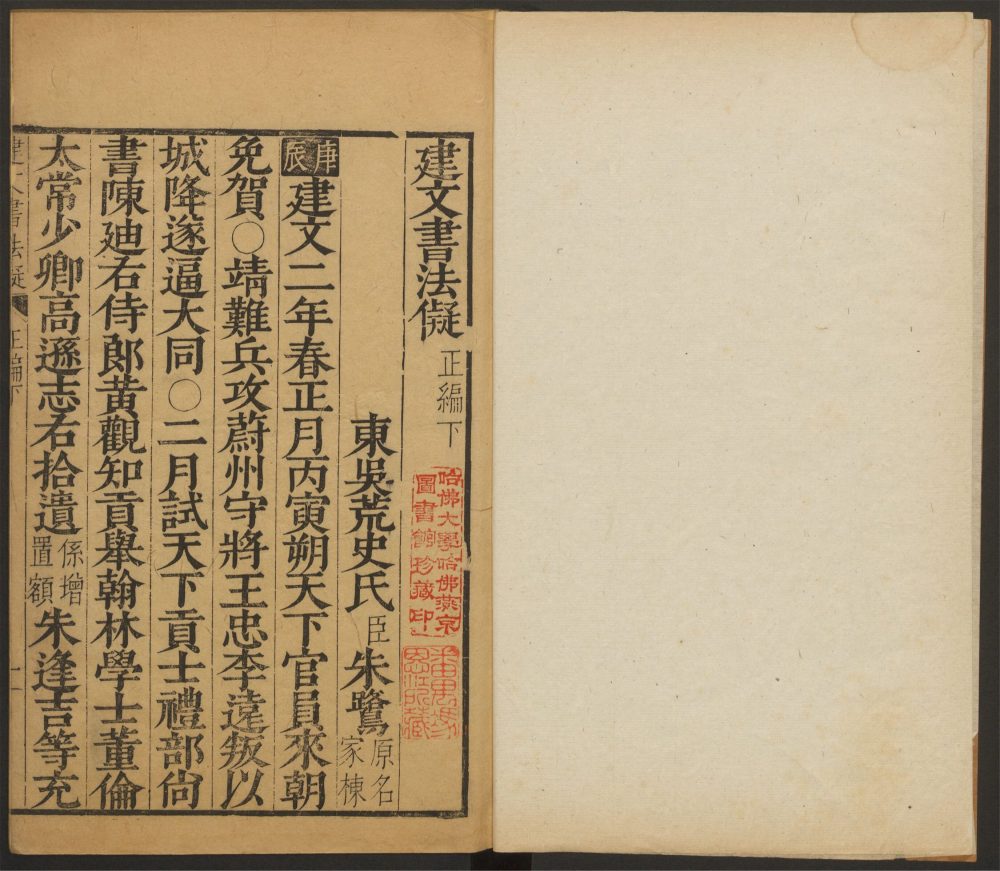 建文書法儗 正編下
東吳荒史氏臣朱鷺原名家棟
庚辰建文二年春正月丙寅朔天下官員來朝
免賀○靖難兵攻蔚州守將王忠李遠叛以
城降遂逼大同○二月試天下貢士禮部尚
書陳廸右侍郎黃觀知貢舉翰林學士董倫
太常少卿高遜志右拾遺係增置額朱逢吉等充
建文書法儗 正編下
哈佛大學哈佛燕京圖書館珍藏印